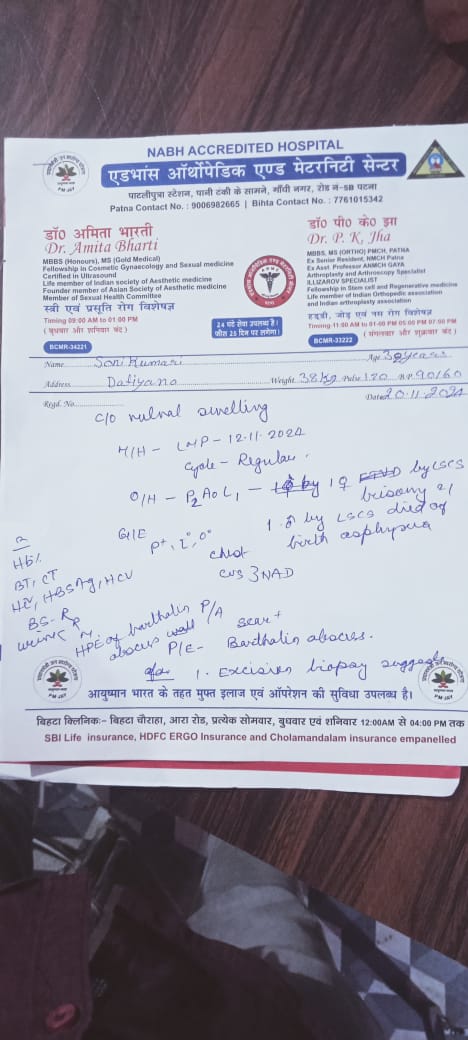 NABH ACCREDITED HOSPITAL
एडभांस ऑर्थोपेडिक एण्ड मेटरनिटी सेन्टर
पाटलीपुत्रा स्टेशन, पानी टंकी के सामने, गाँधी नगर, रोड नं-5B पटना
Patna Contact No. : 9006982665 | Bihta Contact No. : 7761015342
PM-JAY
डॉ० अमिता भारती
Dr. Amita Bharti
MBBS (Honours), MS (Gold Medical)
Fellowship in Cosmetic Gynaecology and Sexual medicine
Certified in Ultrasound
Life member of Indian society of Aesthetic medicine
Founder member of Asian Society of Aesthetic medicine
Member of Sexual Health Committee
स्त्री एवं प्रसूति रोग विशेषज्ञ
Timing 09:00 AM to 01:00 PM
( बुधवार और शनिवार बंद )
BCMR-34221
24 घंटे सेवा उपलब्ध है।
फीस 25 दिन पर लगेगा।
डॉ० पी० के० झा
Dr. P. K. Jha
MBBS, MS (ORTHO) PMCH, PATNA
Ex Senior Resident, NMCH Patna
Ex Asst. Professor ANMCH GAYA
Arthroplasty and Arthroscopy Specialist
ILLIZAROV SPECIALIST
Fellowship in Stem cell and Regenerative medicine
Life member of Indian Orthopedic association
and Indian arthroplasty association
हड्डी, जोड़ एवं नस रोग विशेषज्ञ
Timing-11:00 AM to 01:00 PM 05:00 PM 07:00 PM
( मंगलवार और शुक्रवार बंद )
BCMR-33222
Name Soni Kumari Age 32 years
Address Datiyano Weight 38 kg Pulse 120 B.P. 90/60
Regd. No. Date 20.11.2024
C/O vulval swelling
M/H - LMP - 12.11.2024
Cycle - Regular.
O/H - P2A0L1 - 1♀ by LSCS
1 ♂ by LSCS died of
birth asphyxia
G/E
P+, I°, O°
chest
CVS } NAD
Hb%
BT, CT
HIV, HBSAg, HCV
BS-R
urine R/M
HPE of bartholin
abscess wall
P/A scar+
P/E- Bartholin abscess.
1. Excision biopsy
PM-JAY
आयुष्मान भारत के तहत मुफ्त इलाज एवं ऑपरेशन की सुविधा उपलब्ध है।
PM-JAY
बिहटा क्लिनिकः- बिहटा चौराहा, आरा रोड, प्रत्येक सोमवार, बुधवार एवं शनिवार 12:00AM से 04:00 PM तक
SBI Life insurance, HDFC ERGO Insurance and Cholamandalam insurance empanelled